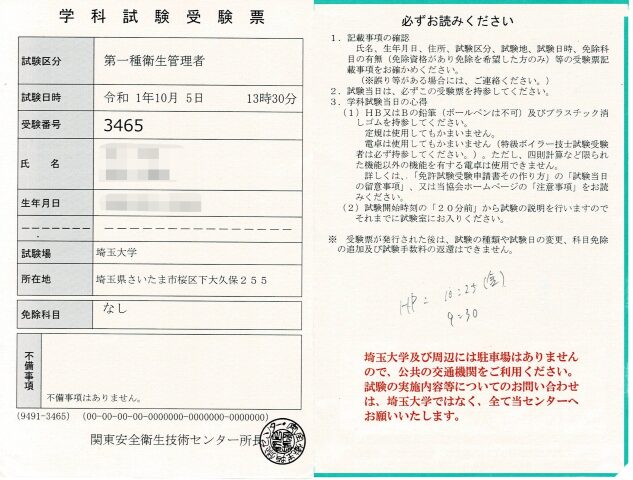 学科試験受験票
試験区分 第一種衛生管理者
試験日時 令和 1年10月 5日 13時30分
受験番号 3465
氏名
生年月日
試験場 埼玉大学
所在地 埼玉県さいたま市桜区下大久保255
免除科目 なし
不備事項
不備事項はありません。
(9491-3465) (00-00-00-0000-0000000-0000-0000000)
関東安全衛生技術センター所長
必ずお読みください
1.記載事項の確認
氏名、生年月日、住所、試験区分、試験地、試験日時、免除科
目の有無(免除資格があり免除を希望した方のみ)等の受験票記
載事項をお確かめください。
(※誤り等がある場合には、ご連絡ください。)
2.試験当日は、必ずこの受験票を持参してください。
3.学科試験当日の心得
(1)HB又はBの鉛筆(ボールペンは不可)及びプラスチック消
しゴムを持参してください。
定規は使用してもかまいません。
電卓は使用してもかまいません(特級ボイラー技士試験受験
者は必ず持参してください。)。ただし、四則計算など限られ
た機能以外の機能を有する電卓は使用できません。
詳しくは、「免許試験受験申請書その作り方」の「試験当日
の留意事項」、又は当協会ホームページの「注意事項」をお読
みください。
(2)試験開始時刻の「20分前」から試験の説明を行いますので
それまでに試験室にお入りください。
※ 受験票が発行された後は、試験の種類や試験日の変更、科目免除
の追加及び試験手数料の返還はできません。
HP = 10:25 (金)
9:30
埼玉大学及び周辺には駐車場はありません
ので、公共の交通機関をご利用ください。
試験の実施内容等についてのお問い合わせ
は、埼玉大学ではなく、全て当センターへ
お願いいたします。